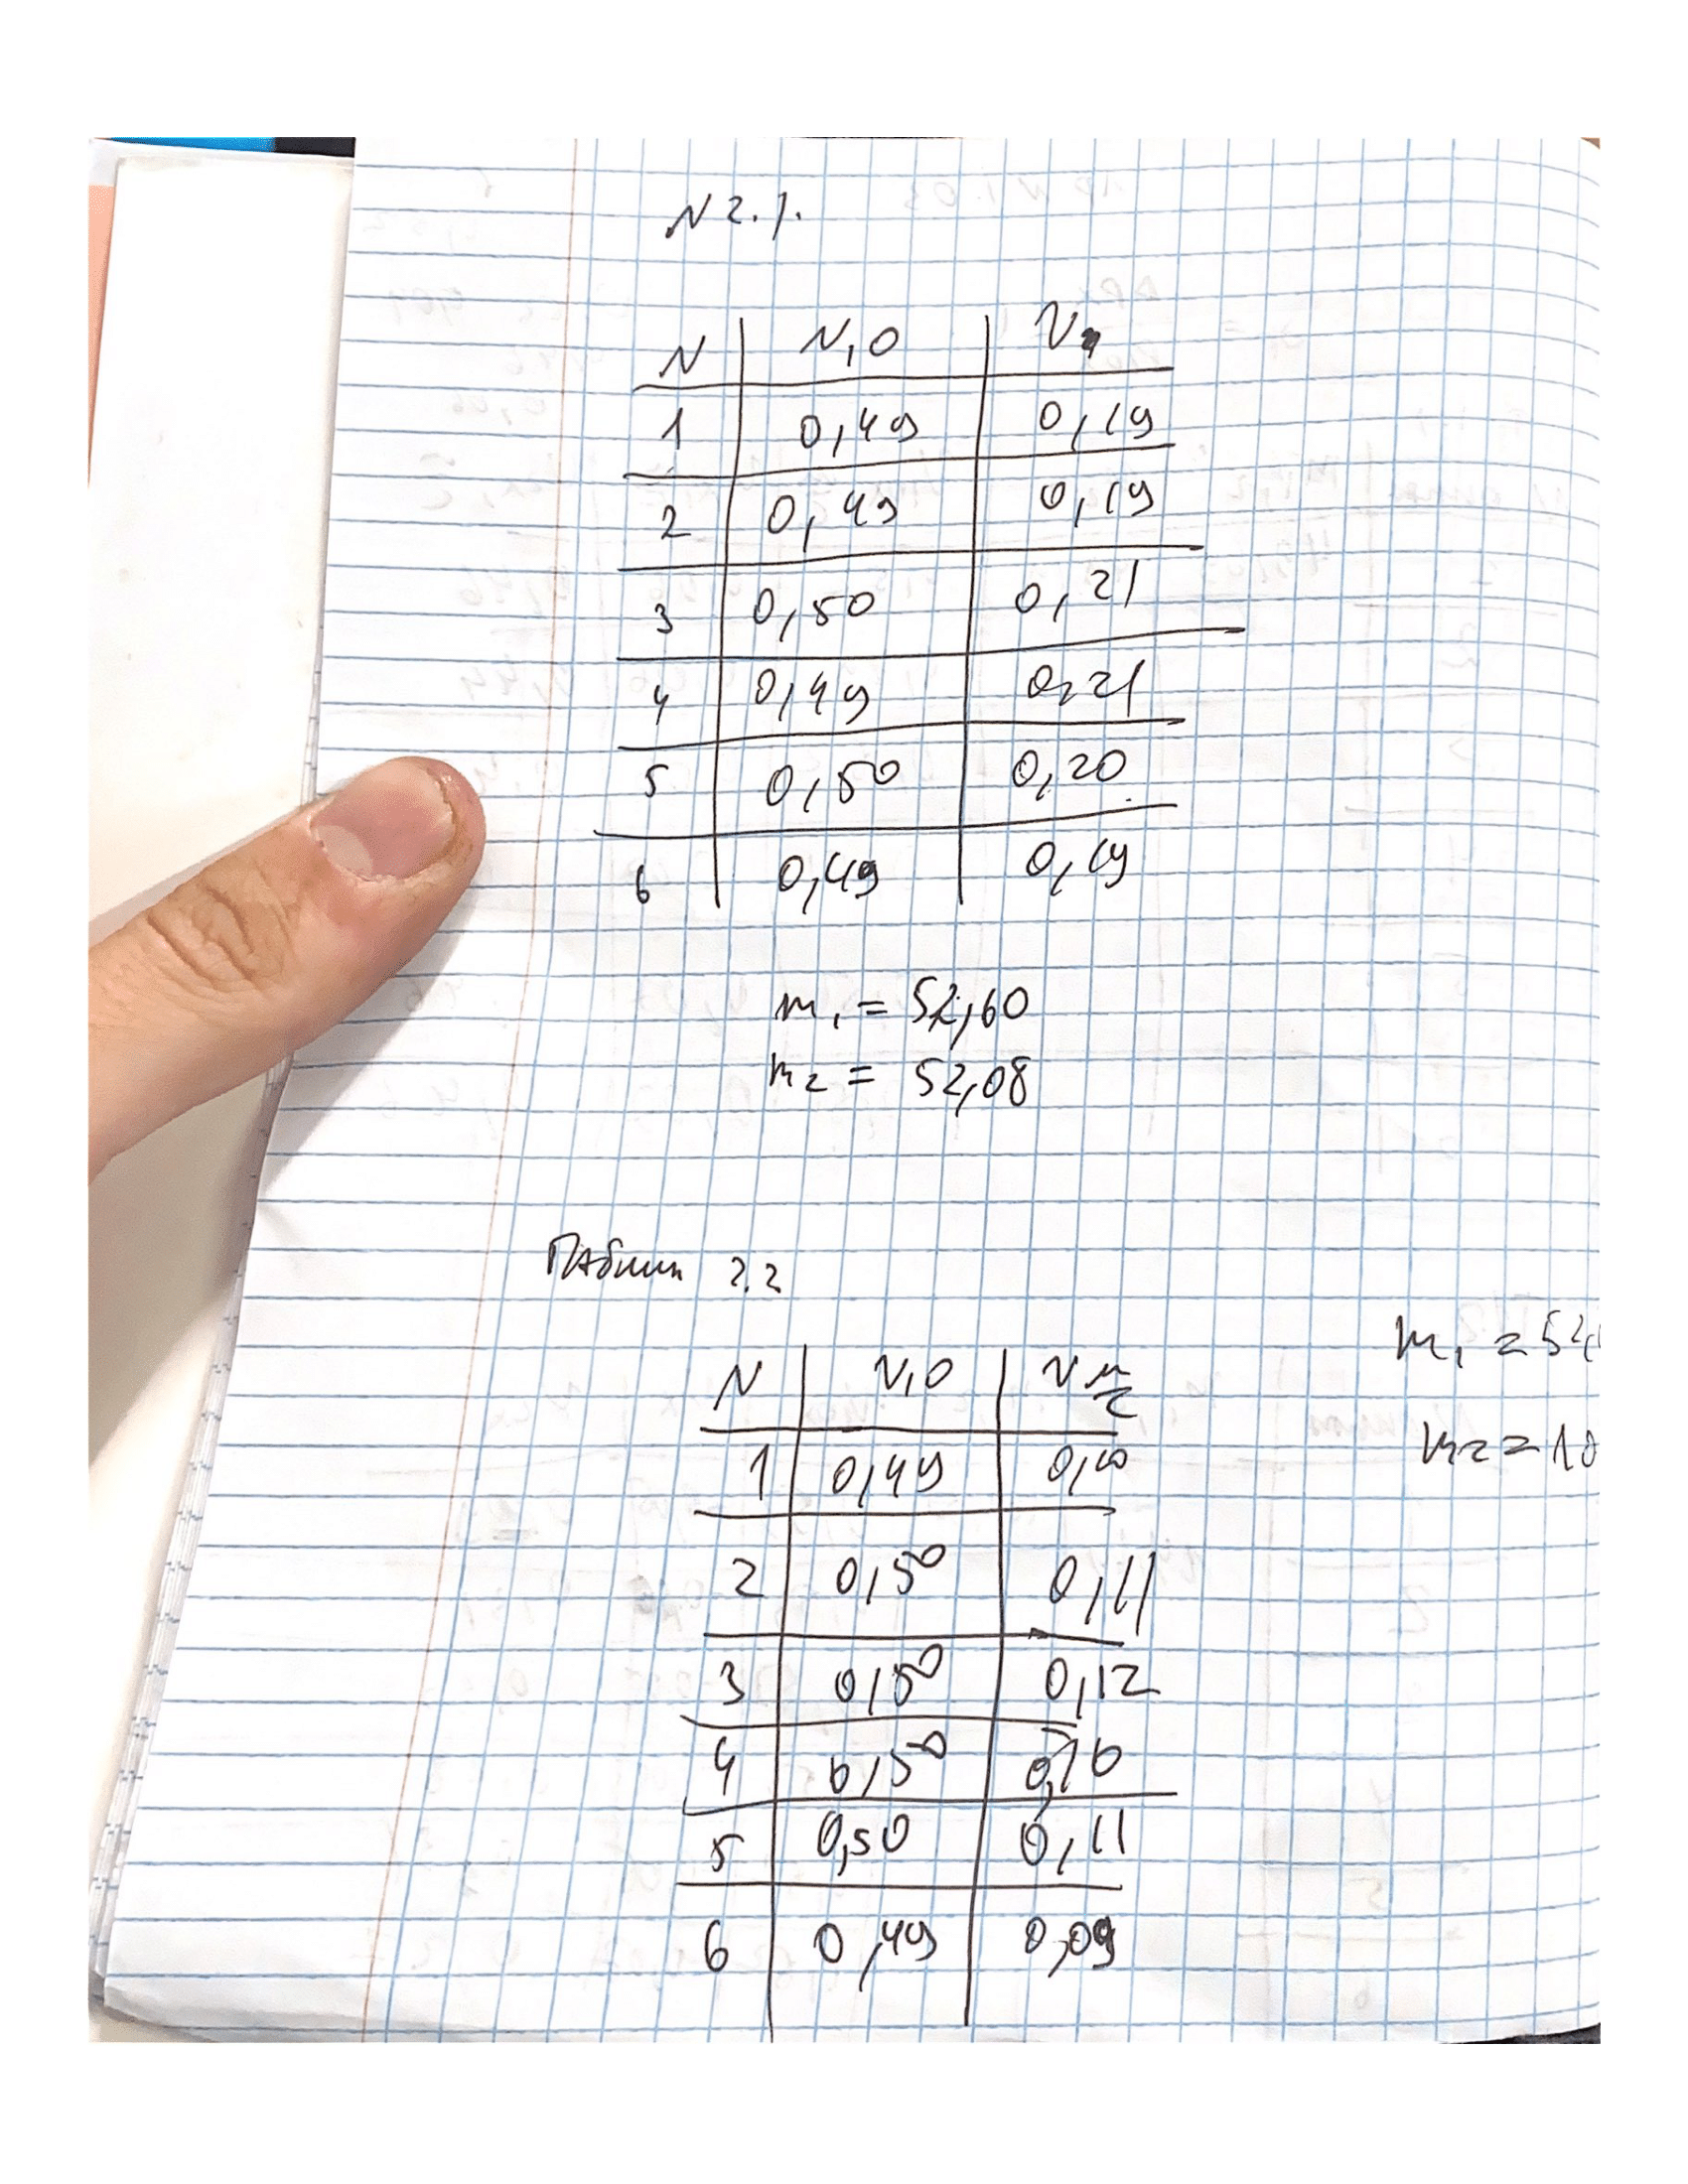 N 2.1.
N V,0 V
1 0,49 0,19
2 0,49 0,19
3 0,50 0,21
4 0,49 0,21
5 0,50 0,20
6 0,49 0,19
m₁ = 52,60
m₂ = 52,08
Таблица 2.2
m₁ = 52,
N V,0 V м/с
m₂ = 10
1 0,49 0,10
2 0,50 0,11
3 0,50 0,12
4 0,50 0,10
5 0,50 0,11
6 0,49 0,09